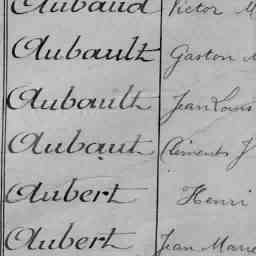 Aubaud Victor M
Aubault Gaston M
Aubault Jean Louis
Aubaut Clément J
Aubert Henri
Aubert Jean Marie